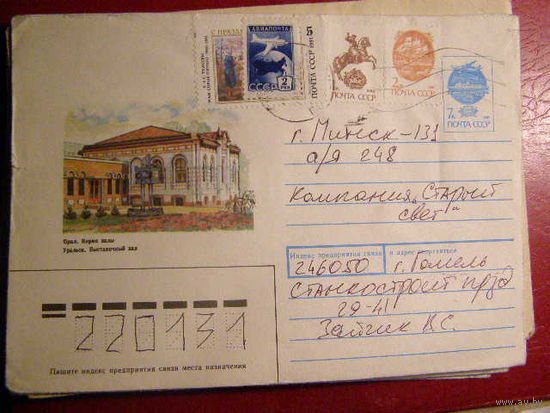 АВИАПОЧТА
2
СССР
5
ПОЧТА СССР
ПОЧТА СССР
2к
ПОЧТА СССР
7к
ПОЧТА СССР
г. Минск-131
а/я 248
Компания „Старый
свет“
Орал. Көрме залы
Уральск. Выставочный зал
Индекс предприятия связи и адрес отправителя
246050 г. Гомель
29-41
Зайчик В.С.
220131
Пишите индекс предприятия связи места назначения
www.au.by